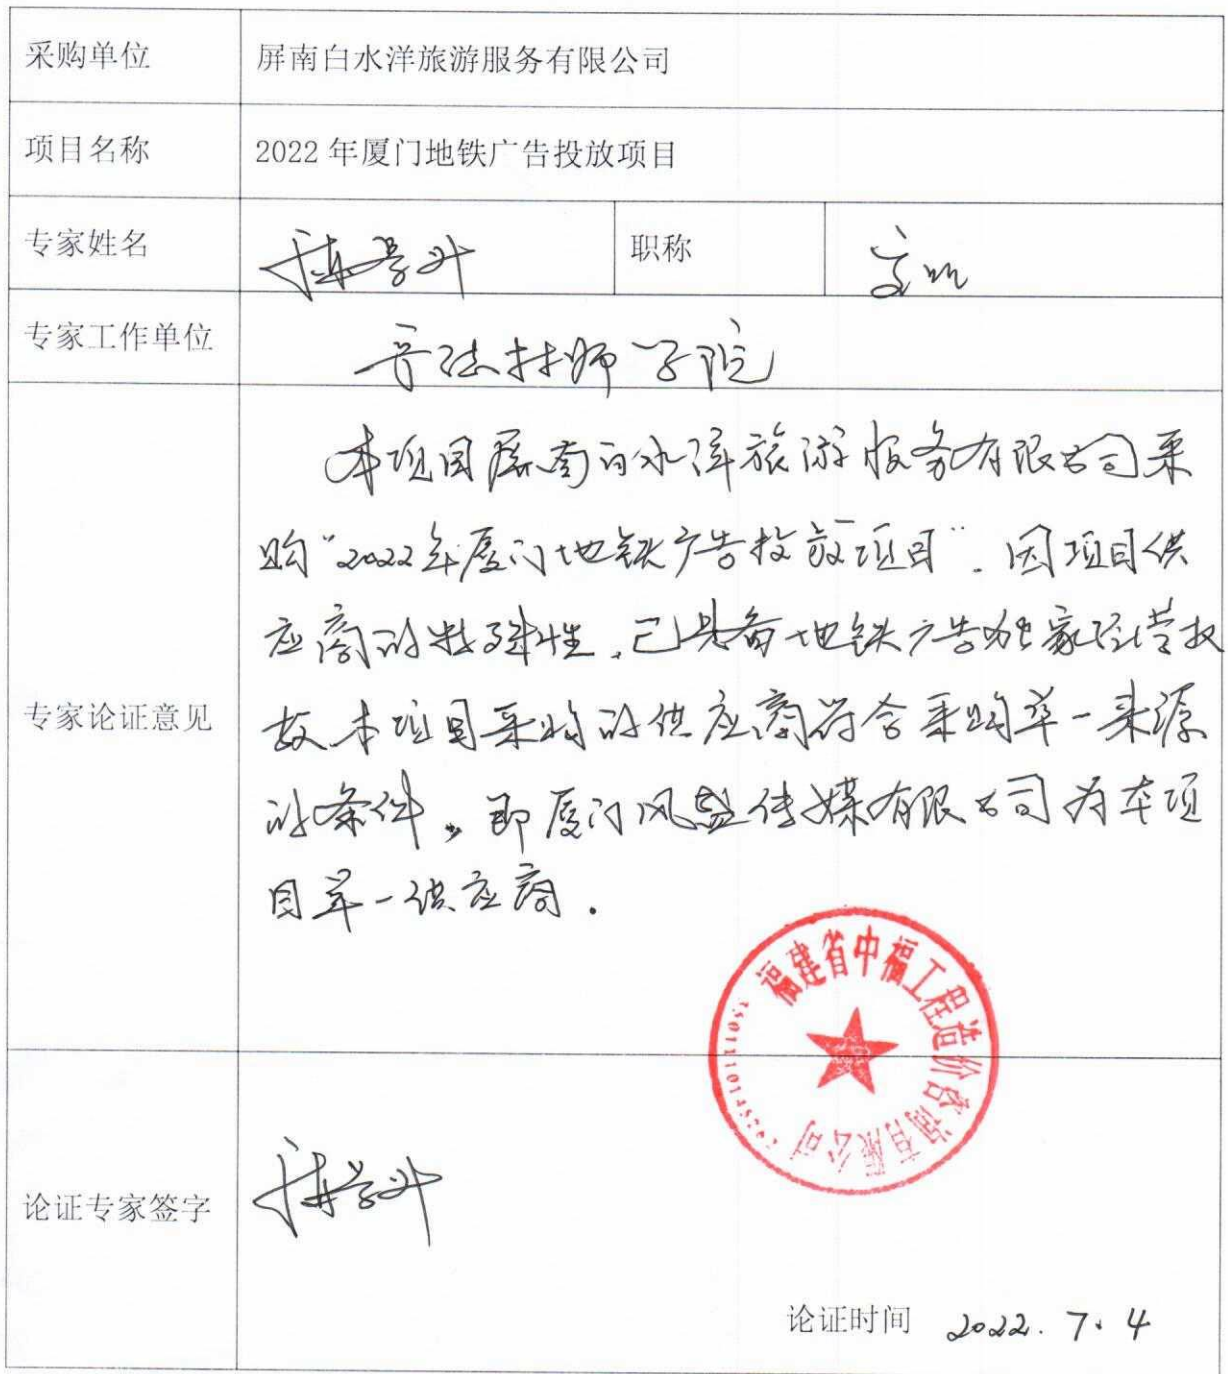 采购单位 屏南白水洋旅游服务有限公司
项目名称 2022年厦门地铁广告投放项目
专家姓名 职称
专家工作单位 技师学院
专家论证意见
本项目屏南白水洋旅游服务有限公司采
购“2022年厦门地铁广告投放项目”. 因项目供
应商的特殊性,已具备地铁广告独家经营权
故本项目采购的供应商符合采购单一来源
的条件。即厦门风盛传媒有限公司为本项
目单一供应商.
福建省中福工程造价咨询有限公司
论证专家签字
论证时间 2022.7.4